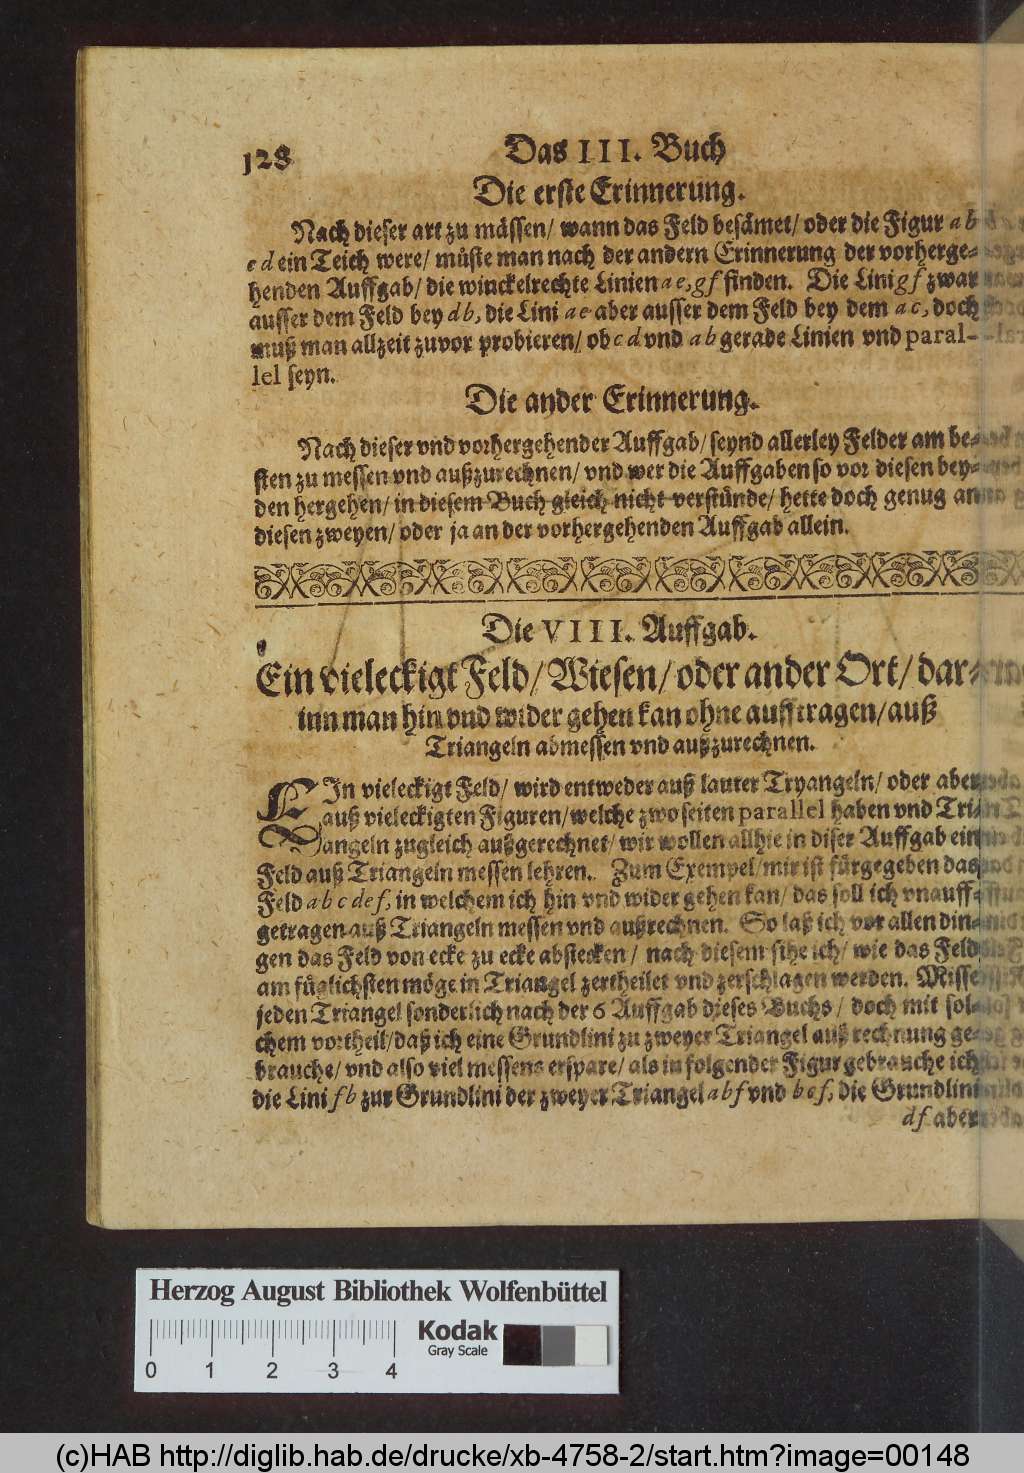 128
Das III. Buch
Die erste Erinnerung.
Nach dieser art zu mässen/ wann das Feld besämet/ oder die Figur a b
c d ein Teich were/ müste man nach der andern Erinnerung der vorherge-
henden Auffgab/ die winckelrechte Linien a e, g f finden. Die Lini g f zwar
ausser dem Feld bey d b, die Lini a e aber ausser dem Feld bey dem a c, doch
muß man allzeit zuvor probieren/ ob c d vnd a b gerade Linien vnd paral-
lel seyn.
Die ander Erinnerung.
Nach dieser vnd vorhergehender Auffgab/ seynd allerley Felder am be-
sten zu messen vnd außzurechnen/ vnd wer die Auffgaben so vor diesen bey-
den hergehen/ in diesem Buch gleich nicht verstünde/ hette doch genug an
diesen zweyen/ oder ja an der vorhergehenden Auffgab allein.
Die VIII. Auffgab.
Ein vieleckigt Feld/ Wiesen/ oder ander Ort/ dar-
inn man hin vnd wider gehen kan ohne aufftragen/ auß
Triangeln abmessen vnd außzurechnen.
EIn vieleckigt Feld/ wird entweder auß lauter Tryangeln/ oder aber
auß vieleckigten Figuren/ welche zwo seiten parallel haben vnd Tri-
angeln zugleich außgerechnet/ wir wollen allhie in diser Auffgab ein
Feld auß Triangeln messen lehren. Zum Exempel/ mir ist fürgegeben das
Feld a b c d e f, in welchem ich hin vnd wider gehen kan/ das soll ich vnauff-
getragen auß Triangeln messen vnd außrechnen. So laß ich vor allen din-
gen das Feld von ecke zu ecke abstecken/ nach diesem sihe ich/ wie das Feld
am füglichsten möge in Triangel zertheilet vnd zerschlagen werden. Misse
jeden Triangel sonderlich nach der 6 Auffgab dieses Buchs/ doch mit sol-
chem vortheil/ daß ich eine Grundlini zu zweyer Triangel auß rechnung ge-
brauche/ vnd also viel messens erspare/ als in folgender Figur gebrauche ich
die Lini f b zur Grundlini der zweyer Triangel a b f vnd b c f, die Grundlini
d f aber
Herzog August Bibliothek Wolfenbüttel
Kodak
Gray Scale
0 1 2 3 4
(c)HAB http://diglib.hab.de/drucke/xb-4758-2/start.htm?image=00148